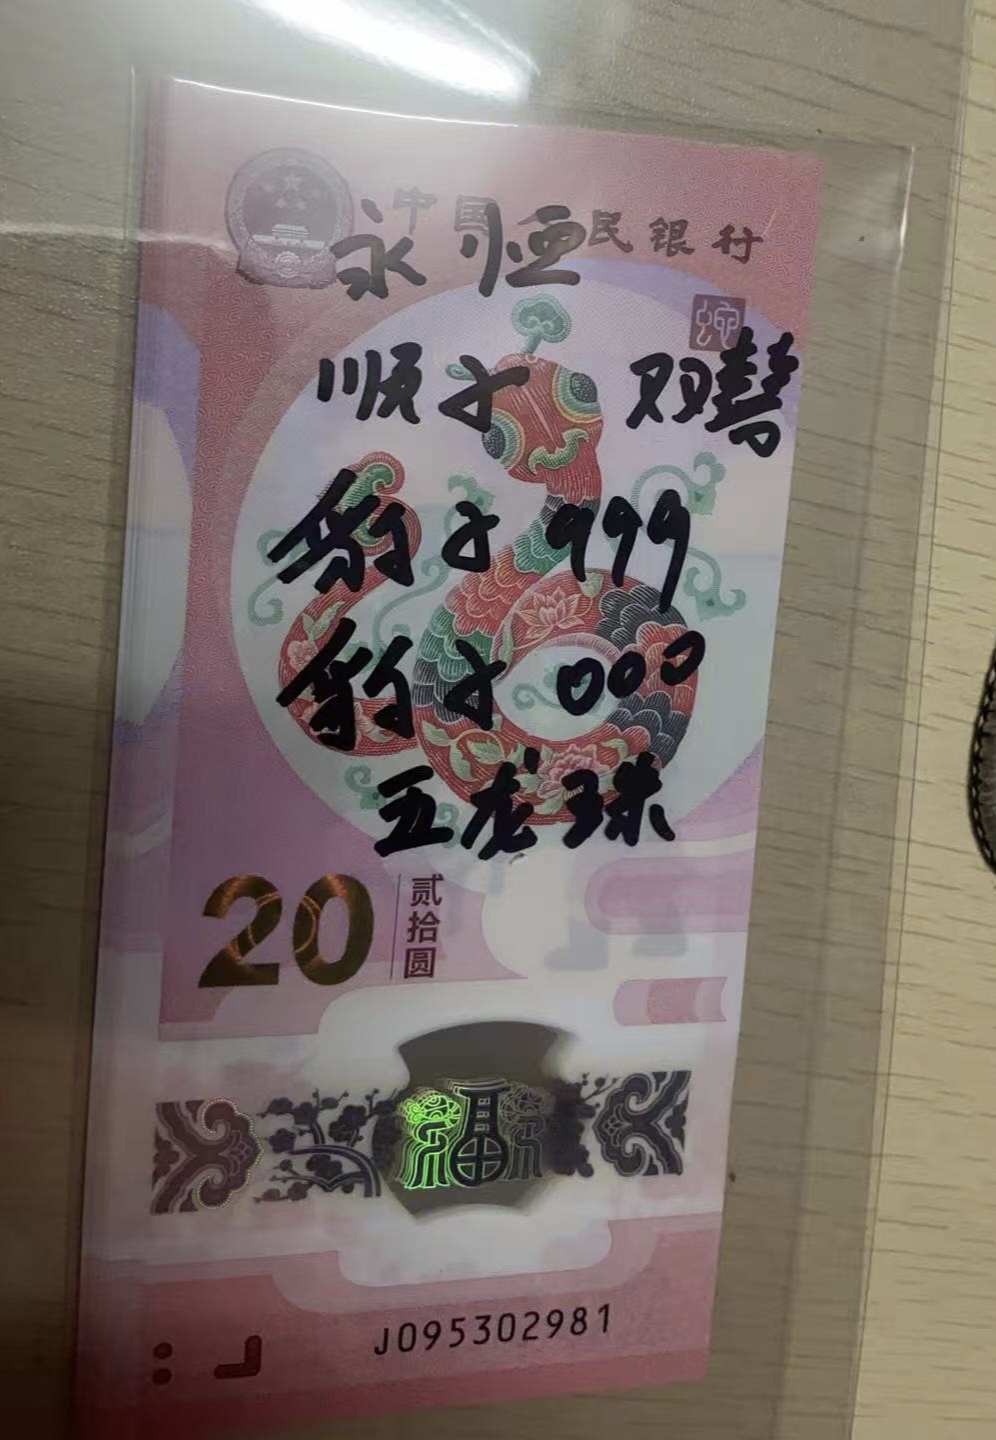 中国人民银行
永恒
蛇
顺子 双彗
豹子 999
豹子 000
五龙珠
20 贰拾圆
福
J095302981